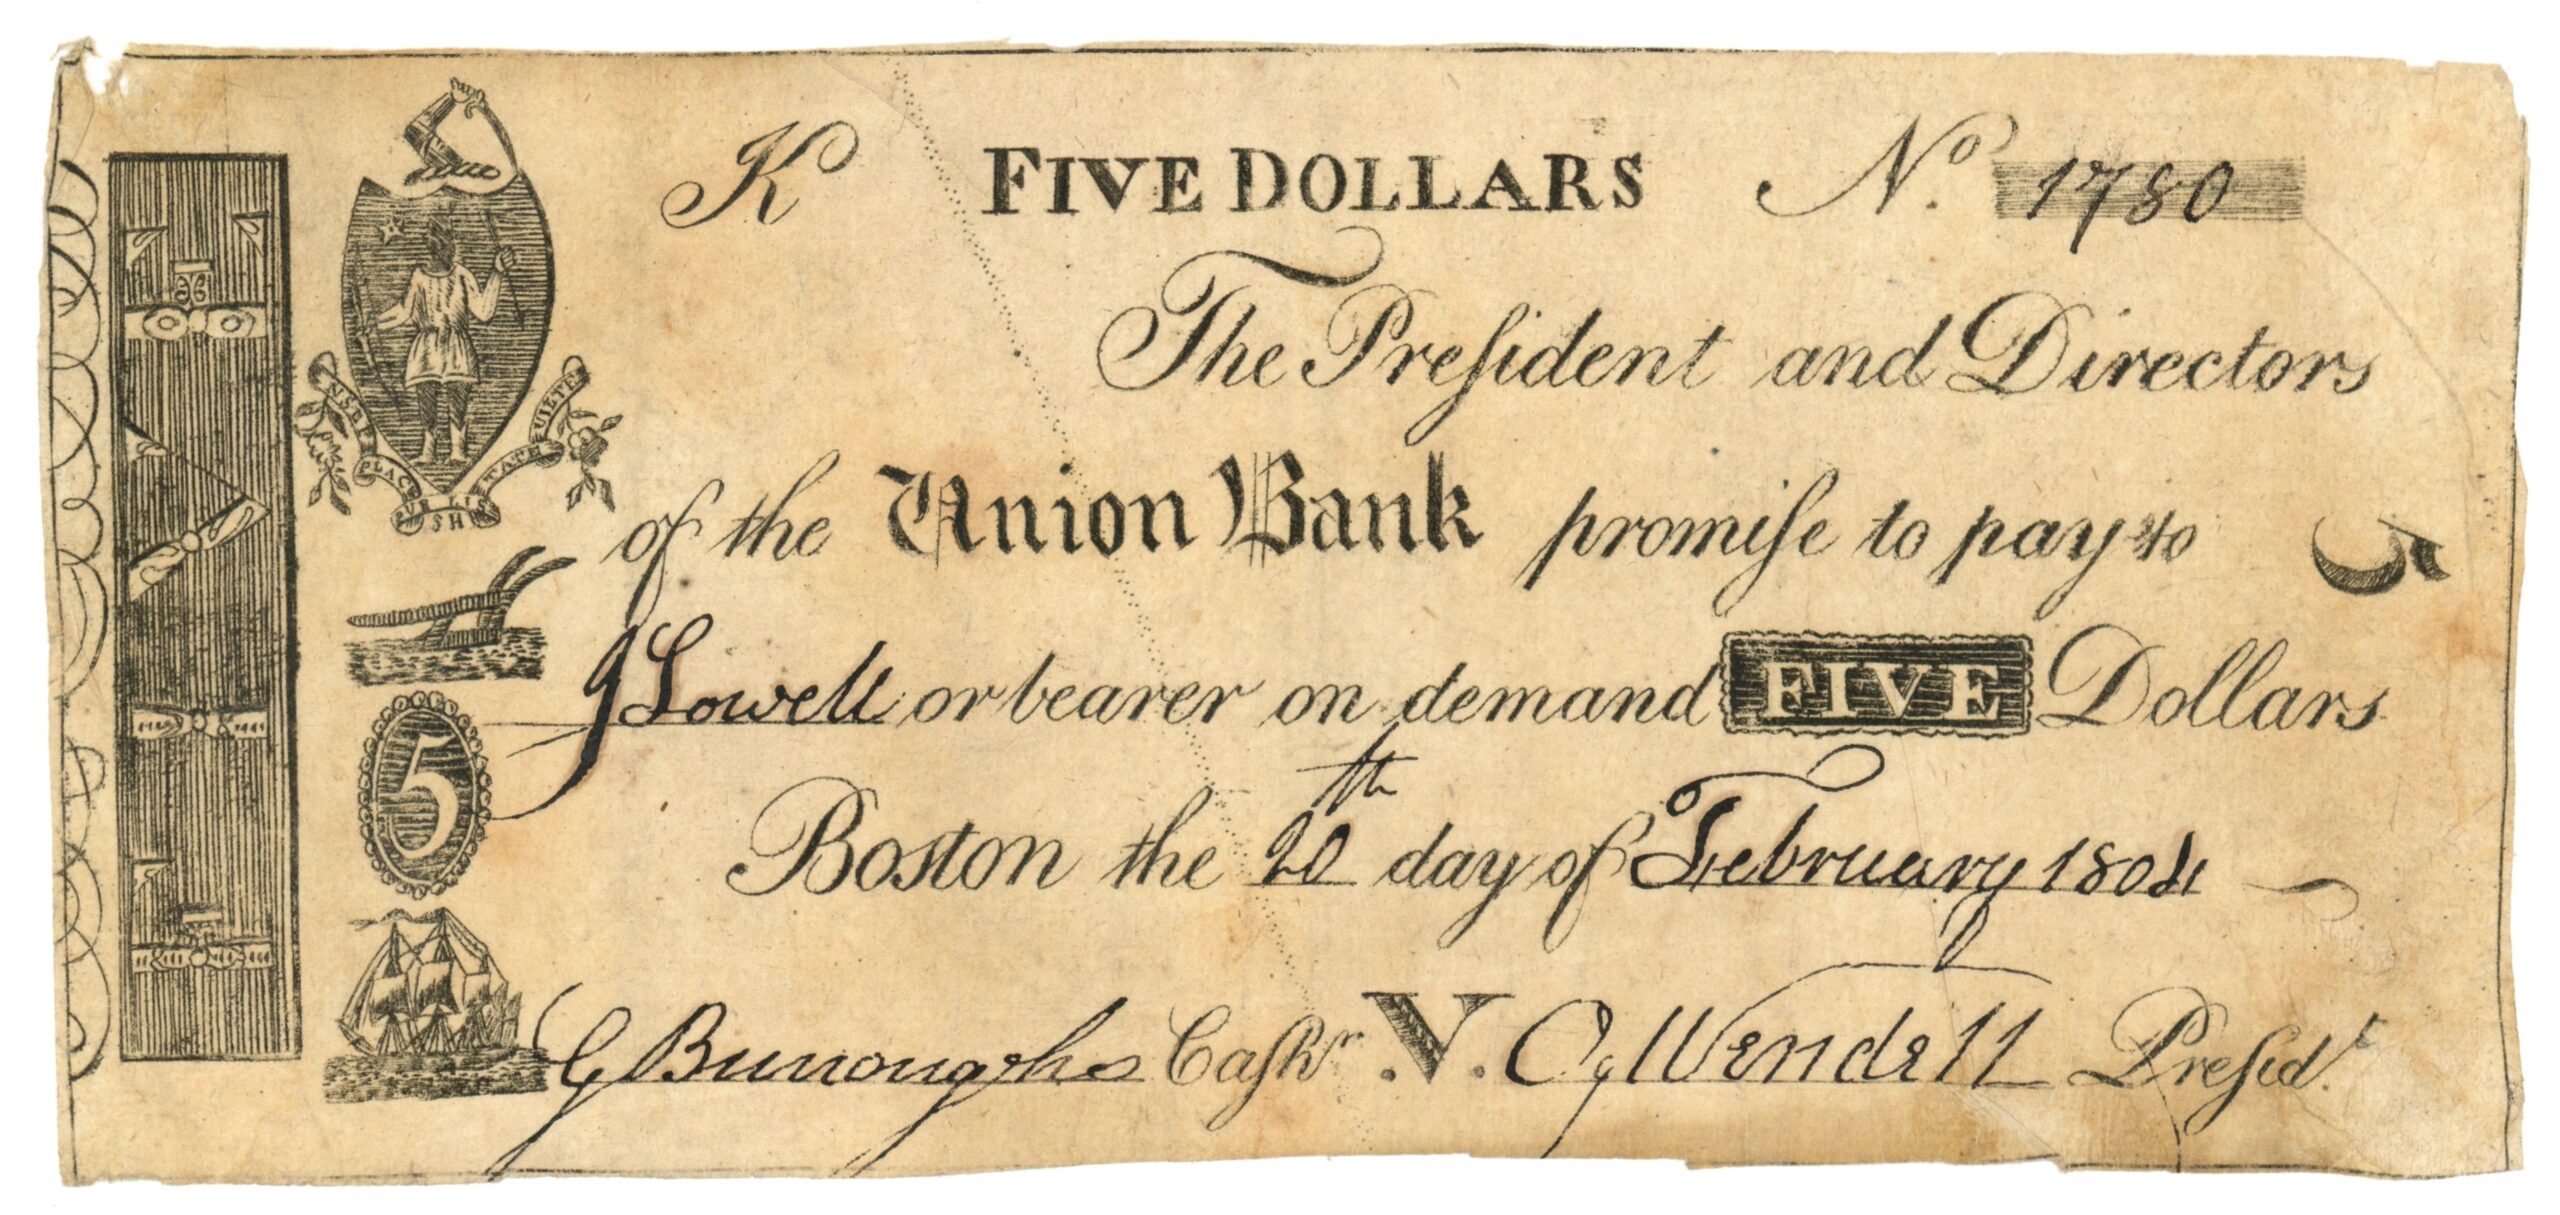 K FIVE DOLLARS No. 1780
The Preſident and Directors
of the Union Bank promiſe to pay to 5
J Lowell or bearer on demand FIVE Dollars
Boston the 20th day of February 1804
G Burroughs Caſhr. V. Wendell Preſidt.
ENSE PE PLACD SUB LI STATE QUIETE
SH
5